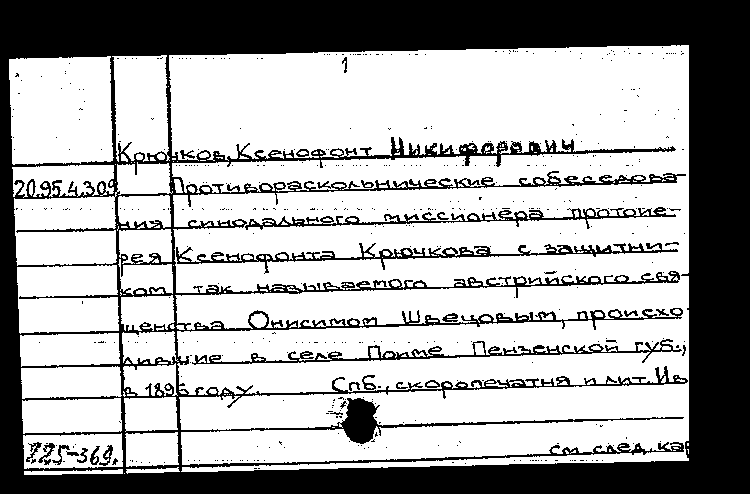 1
Крючков, Ксенофонт Никифорович
20.95.4.309 Противораскольнические собеседова-
ния синодального миссионера протоие-
рея Ксенофонта Крючкова с защитни-
ком так называемого австрийского свя-
щенства Онисимом Швецовым, происхо
дившие в селе Поиме Пензенской губ.,
в 1896 году. Спб., скоропечатня и лит. Ив
225-369. см. след. кар